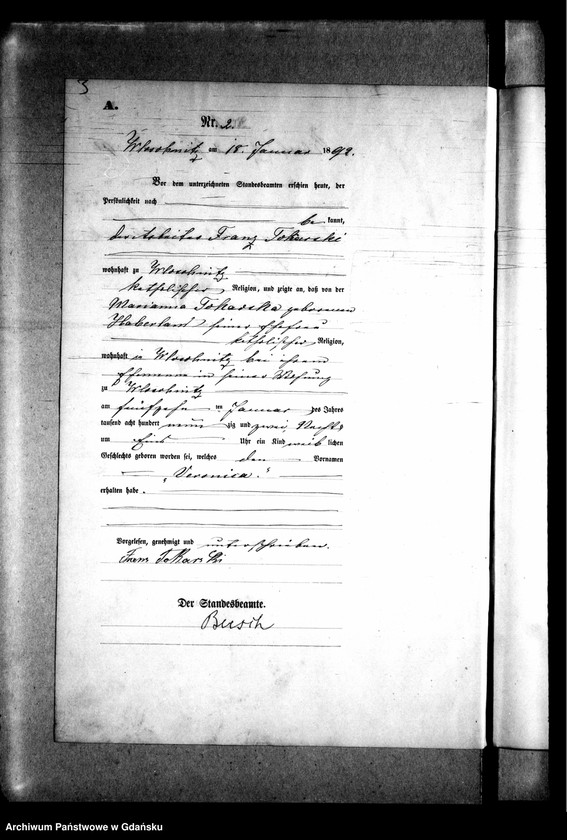 3
A.
Nr. 2.
Wloschnitz am 18. Januar 1892.
Vor dem unterzeichneten Standesbeamten erschien heute, der
Persönlichkeit nach
be kannt,
der Arbeiter Franz Tokarski
wohnhaft zu Wloschnitz
katholischer Religion, und zeigte an, daß von der
Marianna Tokarska geborenen
Haberland seiner Ehefrau
katholischer Religion,
wohnhaft in Wloschnitz bei ihrem
Ehemann in seiner Wohnung
zu Wloschnitz
am fünfzehn ten Januar des Jahres
tausend acht hundert neun zig und zwei, Nachts
um Eins Uhr ein Kind weib lichen
Geschlechts geboren worden sei, welches den Vornamen
„Veronica."
erhalten habe.
Vorgelesen, genehmigt und unterschrieben.
Franz Tokarski
Der Standesbeamte.
Busch
Archiwum Państwowe w Gdańsku